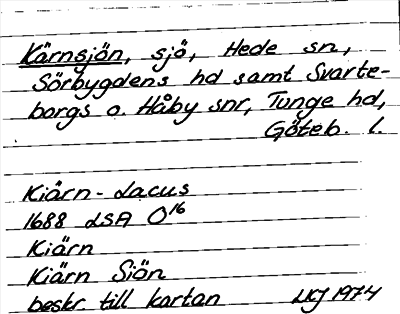 Kärnsjön, sjö, Hede sn,
Sörbygdens hd samt Svarte-
borgs o. Håby snr, Tunge hd,
Göteb. l.
Kiärn-Lacus
1688 LSA O16
Kiärn
Kiärn Siön
beskr. till kartan LKJ 1974